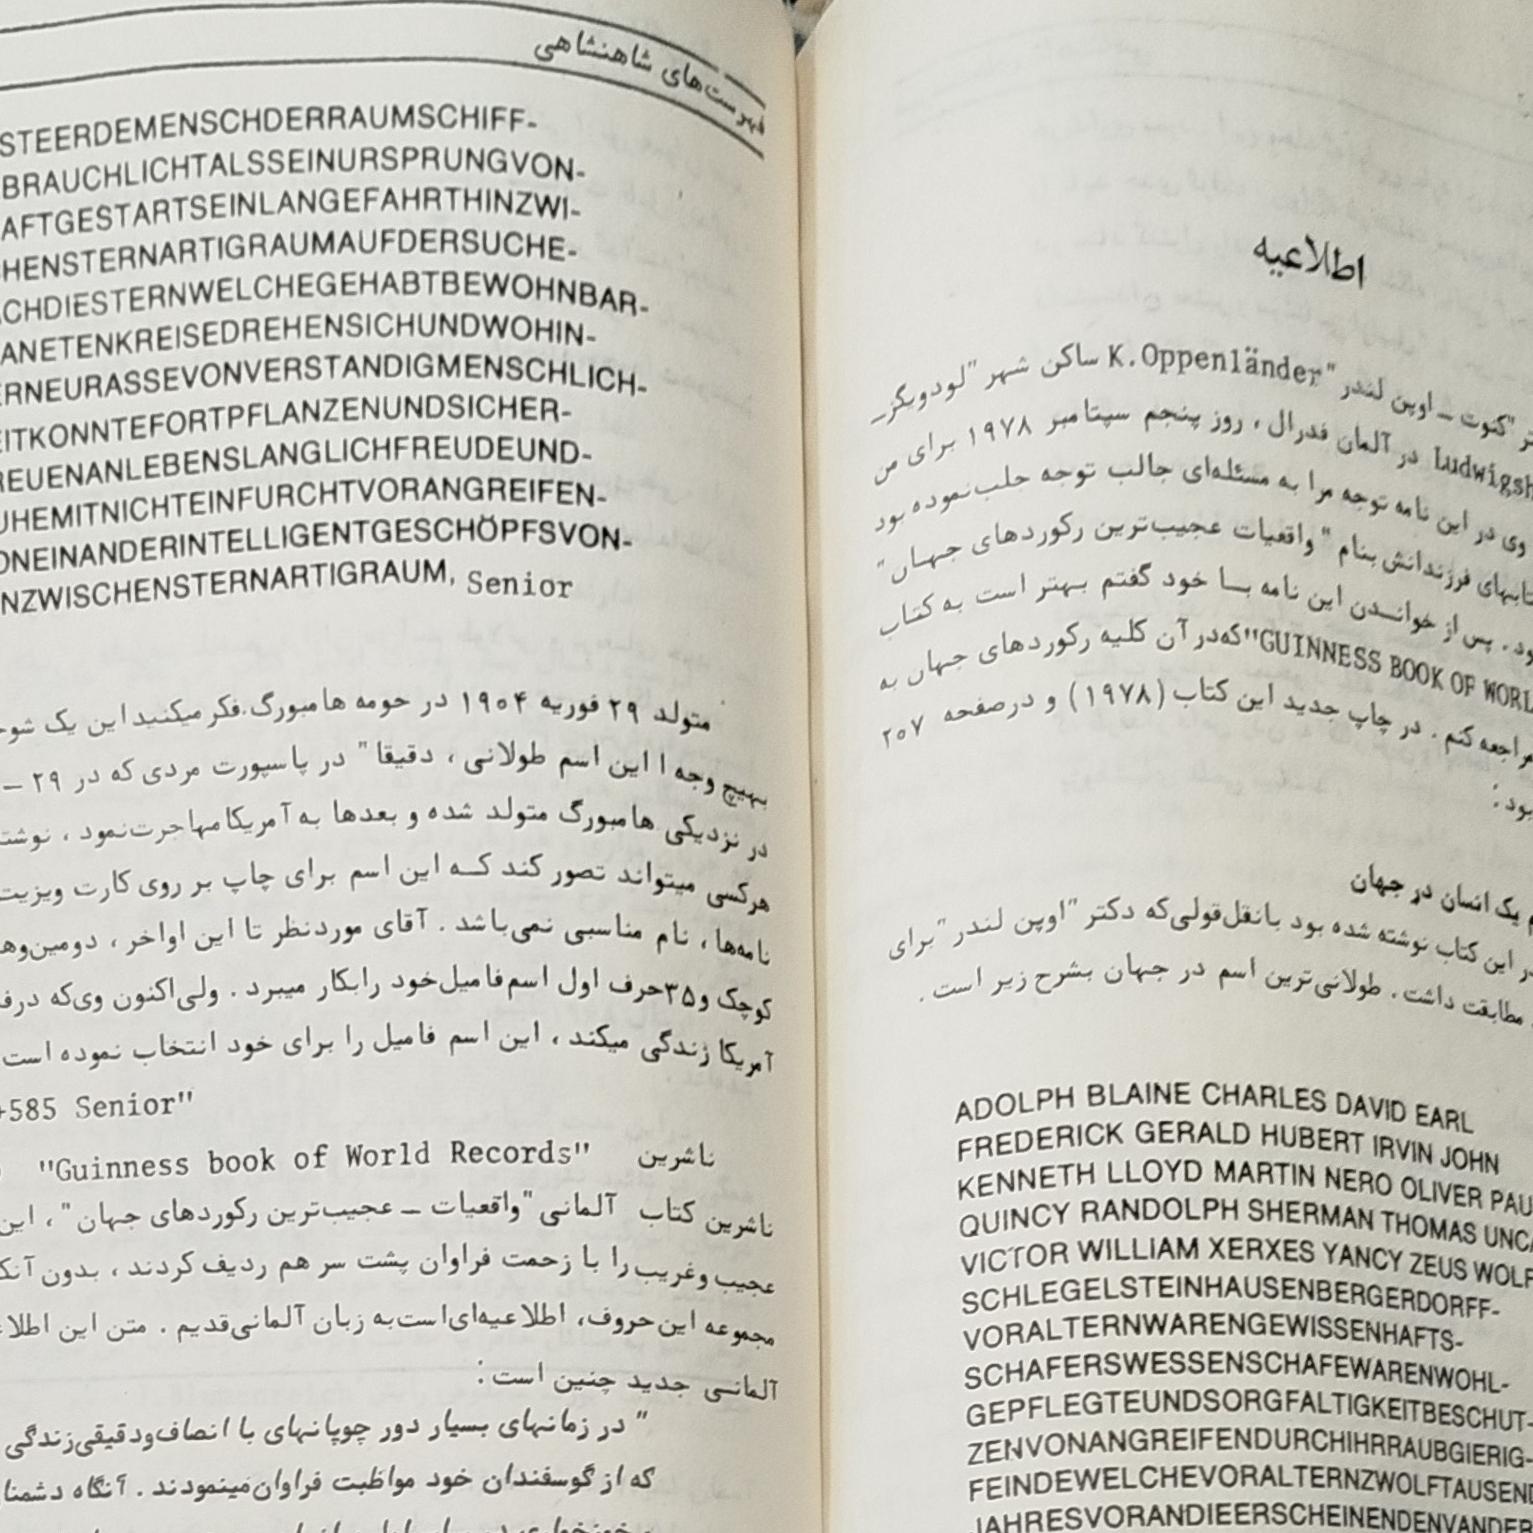 اطلاعیه
"کنوت ـ اوپن لندر "K.Oppenländer ساکن شهر "لودویگزـ
در آلمان فدرال ، روز پنجم سپتامبر ۱۹۷۸ برای من
وی در این نامه توجه مرا به مسئله‌ای جالب توجه جلب‌نموده بود
فرزندانش بنام "واقعیات عجیب‌ترین رکوردهای جهان"
پس از خواندن این نامه با خود گفتم بهتر است به کتاب
"GUINNESS BOOK OF که‌در آن کلیه رکوردهای جهان به
مراجعه کنم . در چاپ جدید این کتاب (۱۹۷۸) و درصفحه ۲۰۷
بود :
یک انسان در جهان
در این کتاب نوشته شده بود بانقل‌قولی‌که دکتر "اوپن لندر "برای
مطابقت داشت . طولانی‌ترین اسم در جهان بشرح زیر است .
ADOLPH BLAINE CHARLES DAVID EARL
FREDERICK GERALD HUBERT IRVIN JOHN
KENNETH LLOYD MARTIN NERO OLIVER
QUINCY RANDOLPH SHERMAN THOMAS
VICTOR WILLIAM XERXES YANCY ZEUS
SCHLEGELSTEINHAUSENBERGERDORFF-
VORALTERNWARENGEWISSENHAFTS-
SCHAFERSWESSENSCHAFEWARENWOHL-
GEPFLEGTEUNDSORGFALTIGKEITBESCHUT-
ZENVONANGREIFENDURCHIHRRAUBGIERIG-
FEINDEWELCHEVORALTERNZWOLFTAUSEND
JAHRESVORANDIEERSCHEINENDENVANDER
فهرست‌های شاهنشاهی
STEERDEMENSCHDERRAUMSCHIFF-
BRAUCHLICHTALSSEINURSPRUNGVON-
AFTGESTARTSEINLANGEFAHRTHINZWI-
HENSTERNARTIGRAUMAUFDERSUCHE-
CHDIESTERNWELCHEGEHABTBEWOHNBAR-
ANETENKREISEDREHENSICHUNDWOHIN-
ERNEURASSEVONVERSTANDIGMENSCHLICH-
EITKONNTEFORTPFLANZENUNDSICHER-
REUENANLEBENSLANGLICHFREUDEUND-
UHEMITNICHTEINFURCHTVORANGREIFEN-
ONEINANDERINTELLIGENTGESCHÖPFSVON-
NZWISCHENSTERNARTIGRAUM, Senior
متولد ۲۹ فوریه ۱۹۰۴ در حومه هامبورگ.فکر میکنید این یک
بهیچ وجه ! این اسم طولانی ، دقیقا" در پاسپورت مردی که در ۲۹ ـ
در نزدیکی هامبورگ متولد شده و بعدها به آمریکا مهاجرت‌نمود ،
هرکسی میتواند تصور کند که این اسم برای چاپ بر روی کارت ویزیت
نامه‌ها ، نام مناسبی نمی‌باشد . آقای موردنظر تا این اواخر ،
کوچک و۳۵حرف اول اسم‌فامیل‌خود رابکار میبرد . ولی‌اکنون وی‌که
آمریکا زندگی میکند ، این اسم فامیل را برای خود انتخاب نموده است
+585 Senior"
ناشرین "Guinness book of World Records"
ناشرین کتاب آلمانی "واقعیات ـ عجیب‌ترین رکوردهای جهان" ، این
عجیب وغریب‌را با زحمت فراوان پشت سر هم ردیف کردند ، بدون
مجموعه این‌حروف، اطلاعیه‌ای‌است‌به زبان آلمانی‌قدیم . متن این
آلمانی جدید چنین است :
" در زمانهای بسیار دور چوپانهای با انصاف‌ودقیقی‌زندگی
که از گوسفندان خود مواظبت فراوان‌مینمودند . آنگاه